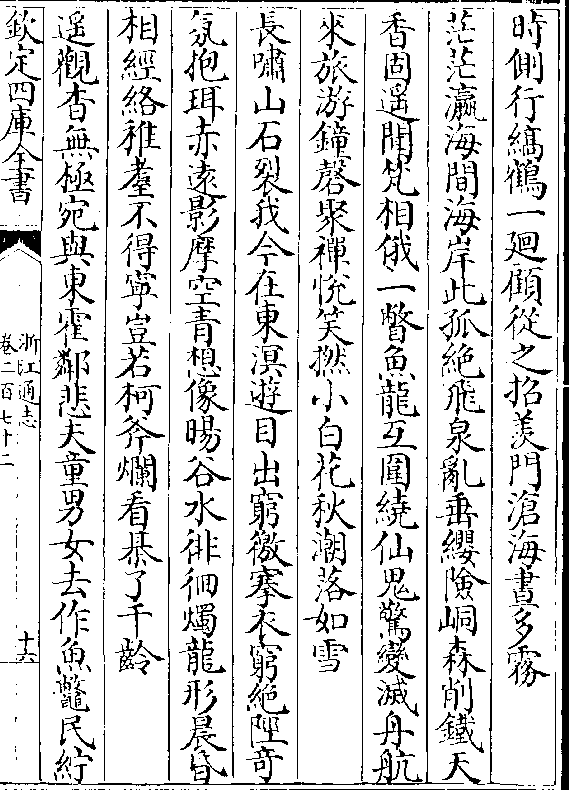 時側行縞鶴一廻顧從之招羨門滄海晝多霧
茫茫瀛海間海岸此孤絶飛泉亂垂纓險峒森削鐵天
香固遥聞梵相俄一瞥魚龍互圍繞仙鬼驚變滅舟航
來旅游鐘磬聚禪恱笑撚小白花秋潮落如雪
長嘯山石裂我今在東溟遊目出窮徼搴衣窮絶陘竒
氛抱珥赤遠影摩空青想像暘谷水徘徊燭龍形晨昏
相經絡稚耋不得寧豈若柯斧爛看棊了千齡
遥觀杳無極宛與東霍鄰悲夫童男女去作魚鼈民紵
欽定四庫全書
浙江通志
卷二百七十二
十六